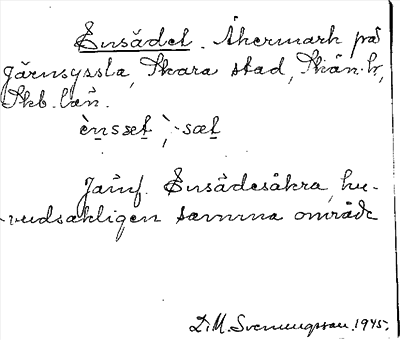 Ensädet. Åkermark på
Järnsyssla, Skara stad, Skån. h.,
Skb. län.
ènsset, -sæt
Jämf. Ensädesåkra, hu-
vudsakligen samma område
D. M. Svenungsson. 1945.